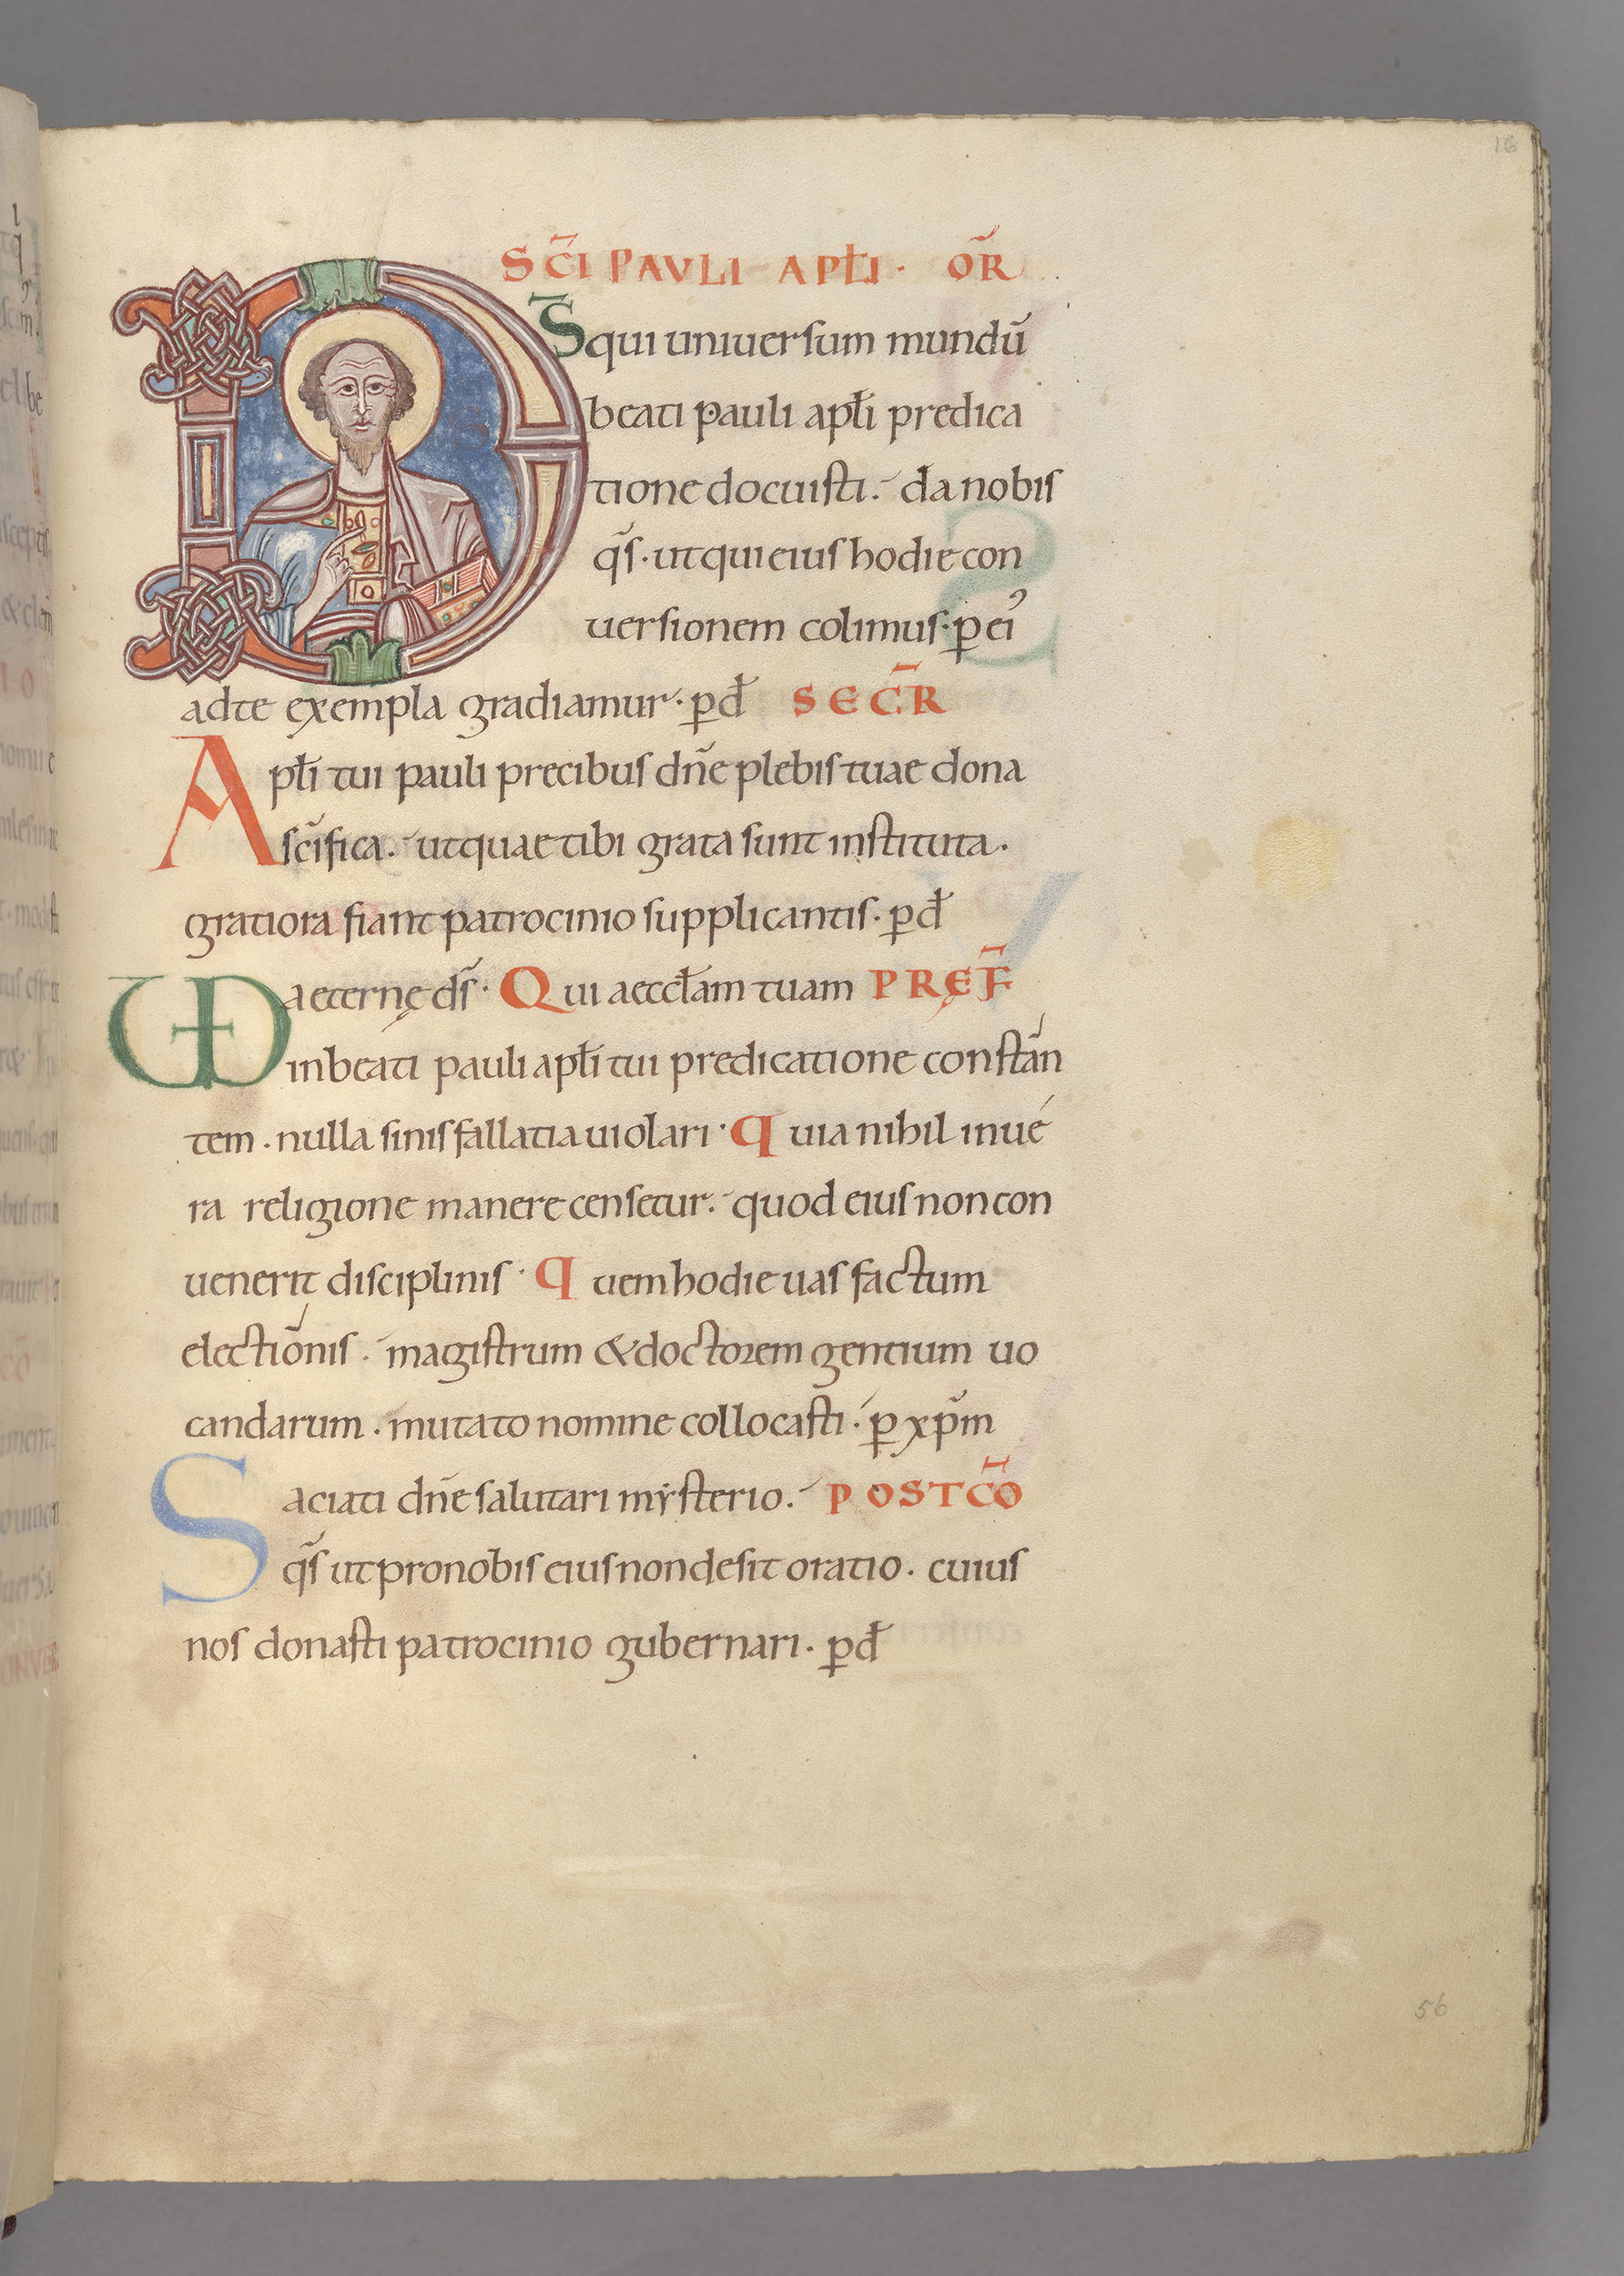 16
SC̄I PAVLI APŁI · OR̄
DS̄ qui uniuersum mundū
beati pauli apłi predica
tione docuisti. da nobis
qs̄. ut qui eius hodie con
uersionem colimus. p ei᾽
ad te exempla gradiamur. p dn̄
SECR̄
Apłi tui pauli precibus dn̄e plebis tuae dona
sc̄ifica. ut quae tibi grata sunt instituta.
gratiora fiant patrocinio supplicantis. p dn̄
VD aeternę ds̄. Qui aeccłam tuam PRĘF̄
in beati pauli apłi tui predicatione constan
tem. nulla sinis fallatia uiolari. quia nihil in ue
ra religione manere censetur. quod eius non con
uenerit disciplinis. quem hodie uas factum
electionis. magistrum & doctorem gentium uo
candarum. mutato nomine collocasti. p xp̄m
Saciati dn̄e salutari mẏsterio. POSTCŌ
qs̄ ut pro nobis eius non desit oratio. cuius
nos donasti patrocinio gubernari. p dn̄
56